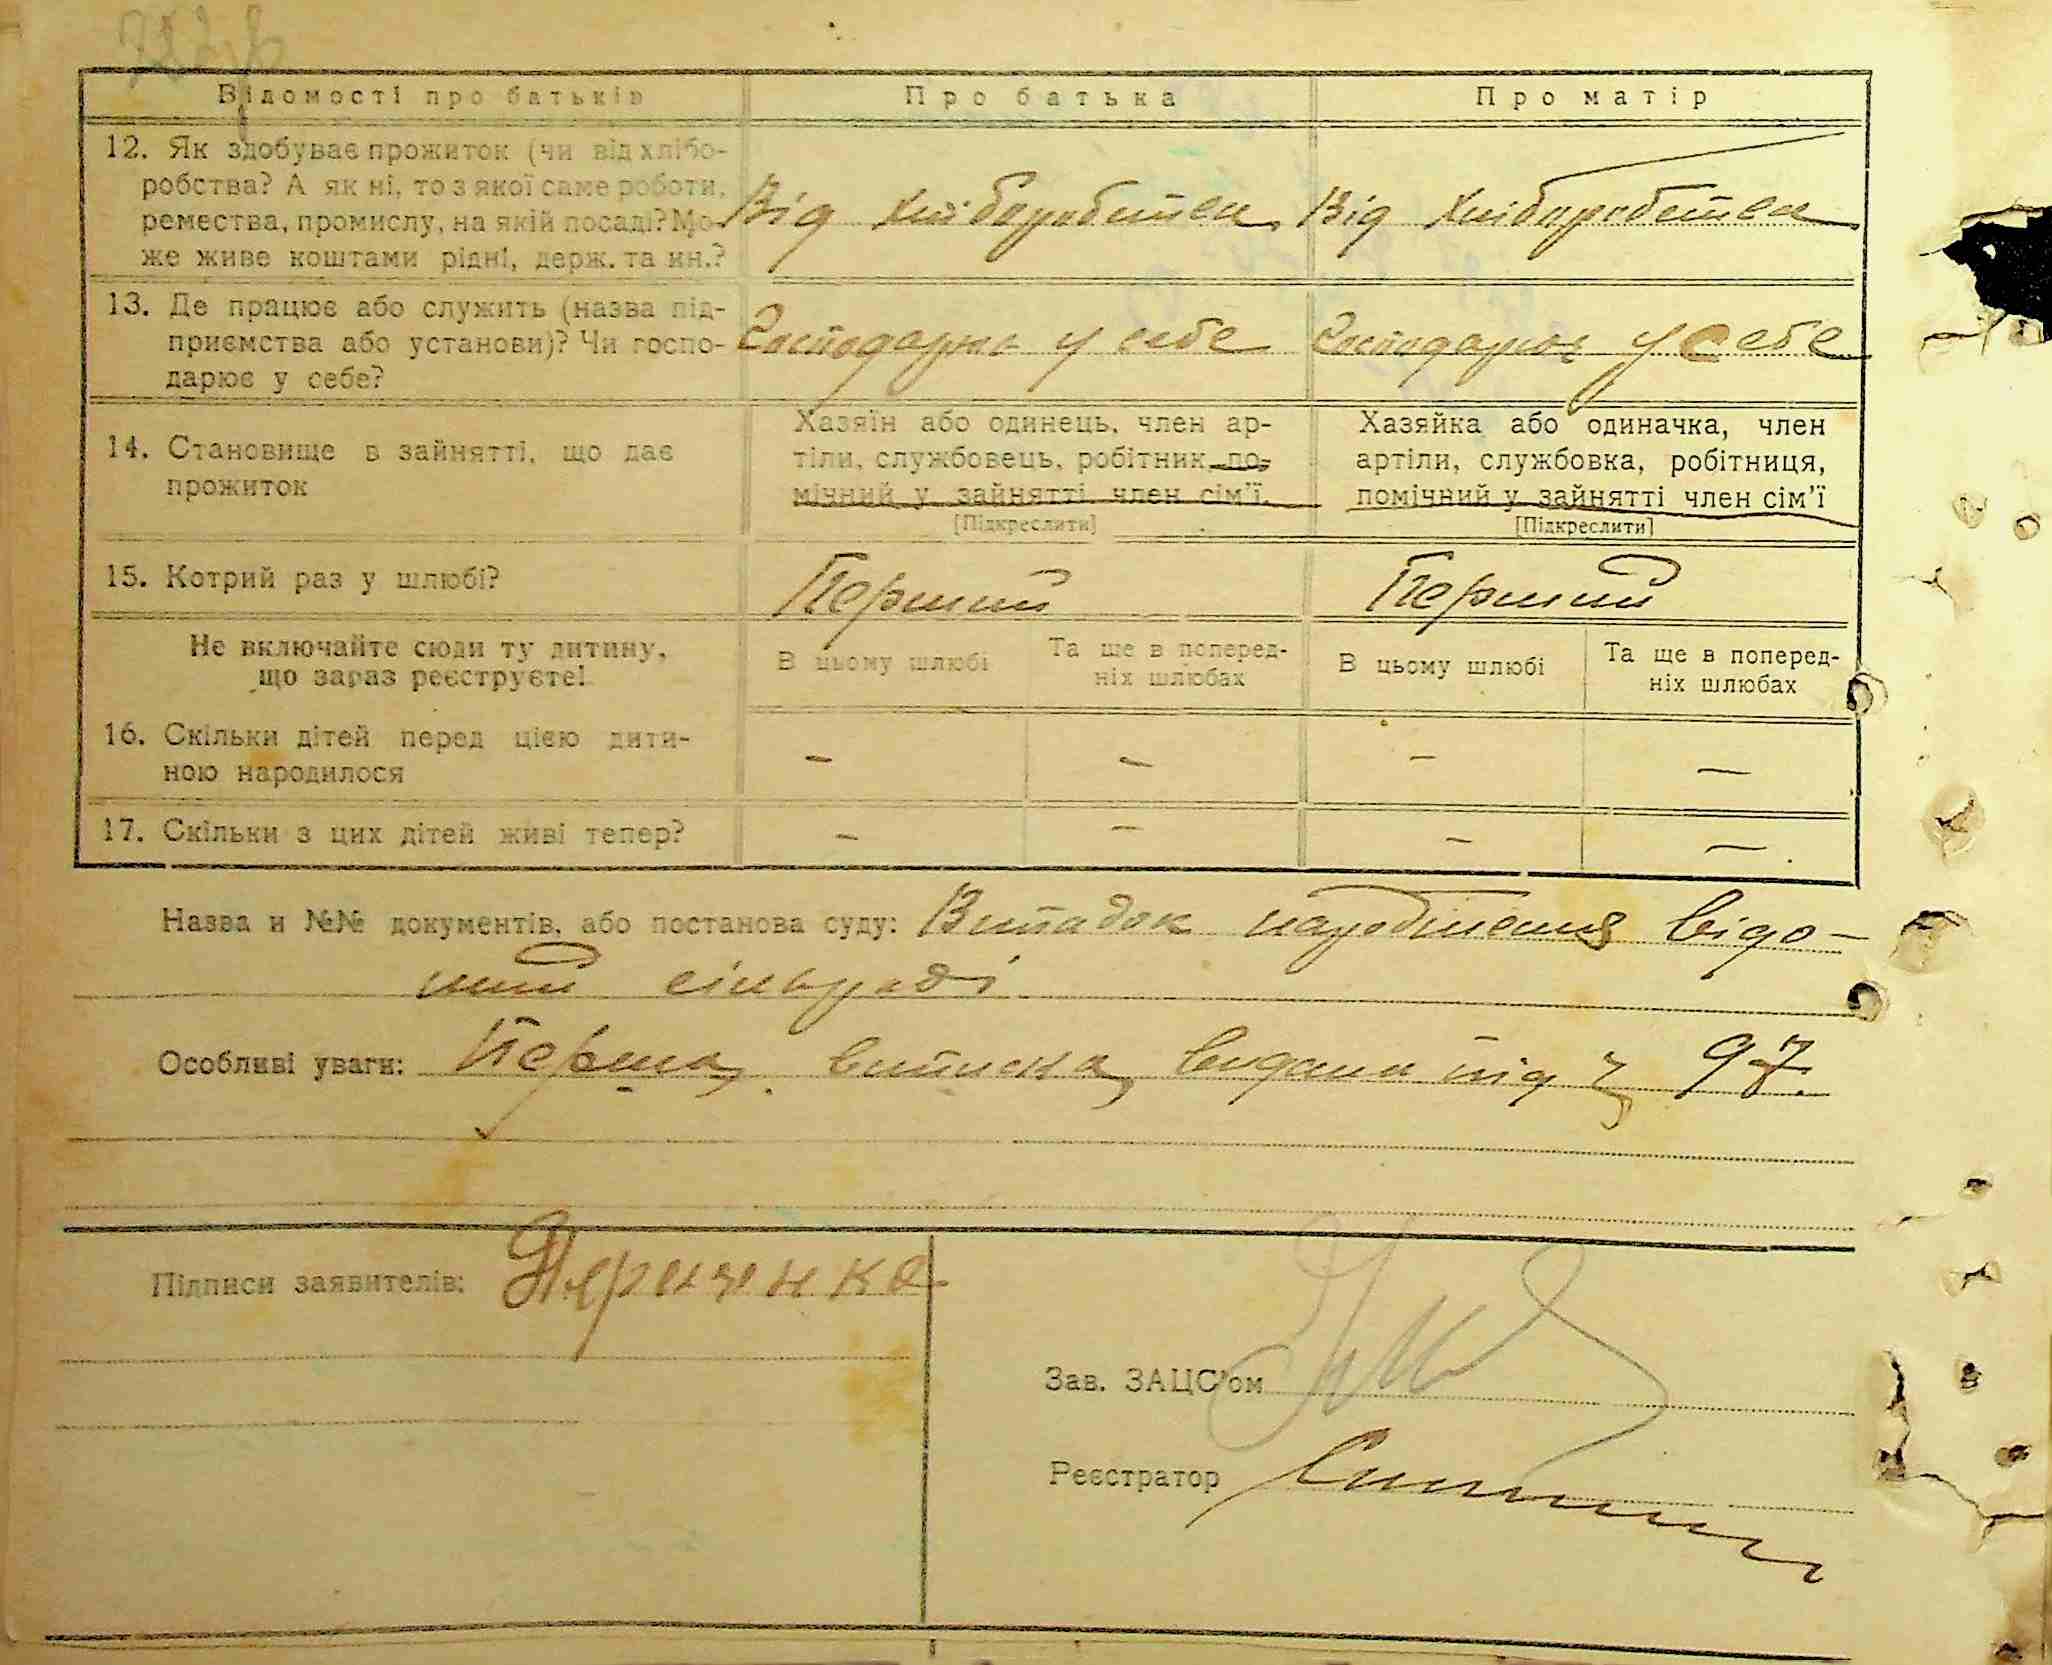 Відомості про батьків
Про батька
Про матір
12. Як здобуває прожиток (чи від хлібо-
робства? А як ні, то з якої саме роботи,
ремества, промислу, на якій посаді? Мо-
же живе коштами рідні, держ. та ин.?
Від хліборобства
Від хліборобства
13. Де працює або служить (назва під-
приємства або установи)? Чи госпо-
дарює у себе?
Господарює у себе
Господарює у себе
14. Становище в зайнятті, що дає
прожиток
Хазяїн або одинець, член ар-
тіли, службовець, робітник, по-
мічний у зайнятті член сім'ї.
[Підкреслити]
Хазяйка або одиначка, член
артіли, службовка, робітниця,
помічний у зайнятті член сім'ї
[Підкреслити]
15. Котрий раз у шлюбі?
Перший
Перший
Не включайте сюди ту дитину,
що зараз реєструєте!
В цьому шлюбі
Та ще в поперед-
ніх шлюбах
В цьому шлюбі
Та ще в поперед-
ніх шлюбах
16. Скільки дітей перед цією дити-
ною народилося
– – – –
17. Скільки з цих дітей живі тепер?
– – – –
Назва и №№ документів, або постанова суду: Випадок народження відо-
мий сільраді
Особливі уваги: Перша виписка видана під ч 97.
Підписи заявителів:
Зав. ЗАЦС'ом
Реєстратор